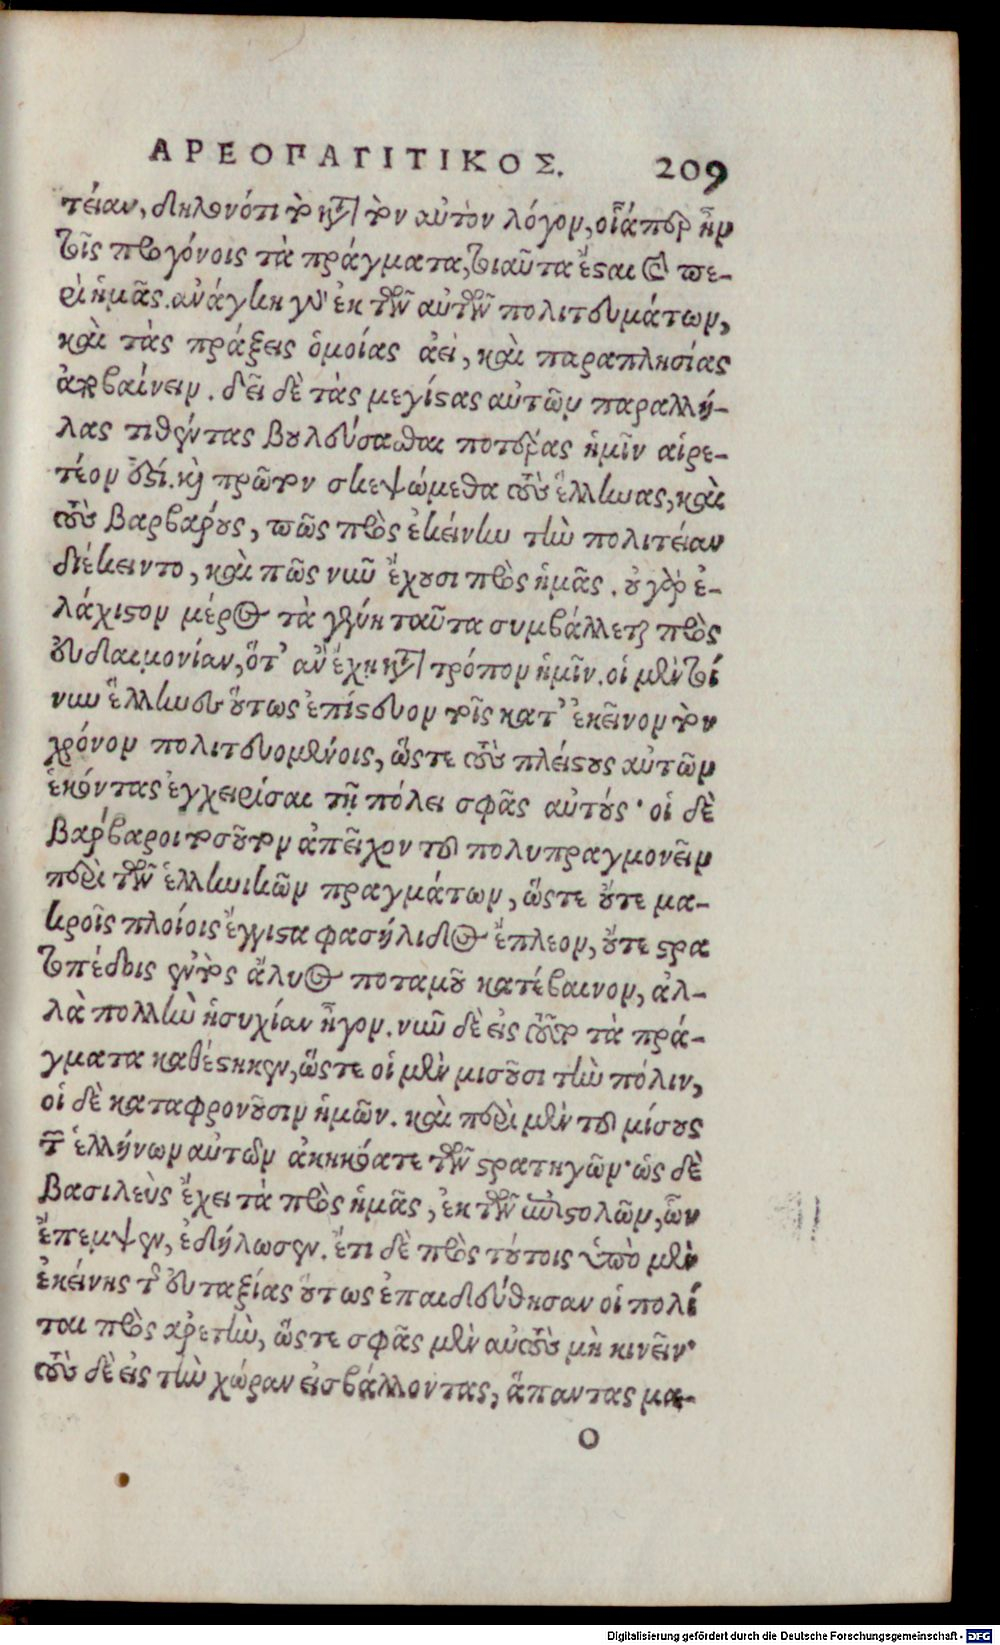 ΑΡΕΟΠΑΓΙΤΙΚΟΣ. 209
τείαν, δηλονότι κατὰ τὸν αὐτὸν λόγον, οἷάπερ ἦν
τοῖς προγόνοις τὰ πράγματα, τοιαῦτα ἔσται καὶ πε-
ρὶ ἡμᾶς. ἀνάγκη γὰρ ἐκ τῶν αὐτῶν πολιτευμάτων,
καὶ τὰς πράξεις ὁμοίας ἀεὶ, καὶ παραπλησίας
ἀποβαίνειν. δεῖ δὲ τὰς μεγίστας αὐτῶν παραλλή-
λας τιθέντας βουλεύσασθαι ποτέρας ἡμῖν αἱρε-
τέον ἐστί. καὶ πρῶτον σκεψώμεθα τοὺς ἕλληνας, καὶ
τοὺς βαρβάρους, πῶς πρὸς ἐκείνην τὴν πολιτείαν
διέκειντο, καὶ πῶς νῦν ἔχουσι πρὸς ἡμᾶς. οὐ γὰρ ἐ-
λάχιστον μέρος τὰ γένη ταῦτα συμβάλλεται πρὸς
εὐδαιμονίαν, ὅτ' ἂν ἔχῃ κατὰ τρόπον ἡμῖν. οἱ μὲν τοί
νυν ἕλληνες οὕτως ἐπίστευον τοῖς κατ' ἐκεῖνον τὸν
χρόνον πολιτευομένοις, ὥστε τοὺς πλείστους αὐτῶν
ἑκόντας ἐγχειρίσαι τῇ πόλει σφᾶς αὐτούς· οἱ δὲ
βάρβαροι τοσοῦτον ἀπεῖχον τοῦ πολυπραγμονεῖν
περὶ τῶν ἑλληνικῶν πραγμάτων, ὥστε οὔτε μα-
κροῖς πλοίοις ἔγγιστα φασήλιδος ἔπλεον, οὔτε στρα
τοπέδοις ἐντὸς ἅλυος ποταμοῦ κατέβαινον, ἀλ-
λὰ πολλὴν ἡσυχίαν ἦγον. νῦν δὲ εἰς τοῦτο τὰ πρά-
γματα καθέστηκεν, ὥστε οἱ μὲν μισοῦσι τὴν πόλιν,
οἱ δὲ καταφρονοῦσιν ἡμῶν. καὶ περὶ μὲν τοῦ μίσους
τῶν ἑλλήνων αὐτῶν ἀκηκόατε τῶν στρατηγῶν· ὡς δὲ
βασιλεὺς ἔχει τὰ πρὸς ἡμᾶς, ἐκ τῶν ἐπιστολῶν, ὧν
ἔπεμψεν, ἐδήλωσεν. ἔτι δὲ πρὸς τούτοις ὑπὸ μὲν
ἐκείνης τῆς εὐταξίας οὕτως ἐπαιδεύθησαν οἱ πολί
ται πρὸς ἀρετὴν, ὥστε σφᾶς μὲν αὐτοὺς μὴ κινεῖν·
τοὺς δὲ εἰς τὴν χώραν εἰσβάλλοντας, ἅπαντας μα-
O
Digitalisierung gefördert durch die Deutsche Forschungsgemeinschaft - DFG